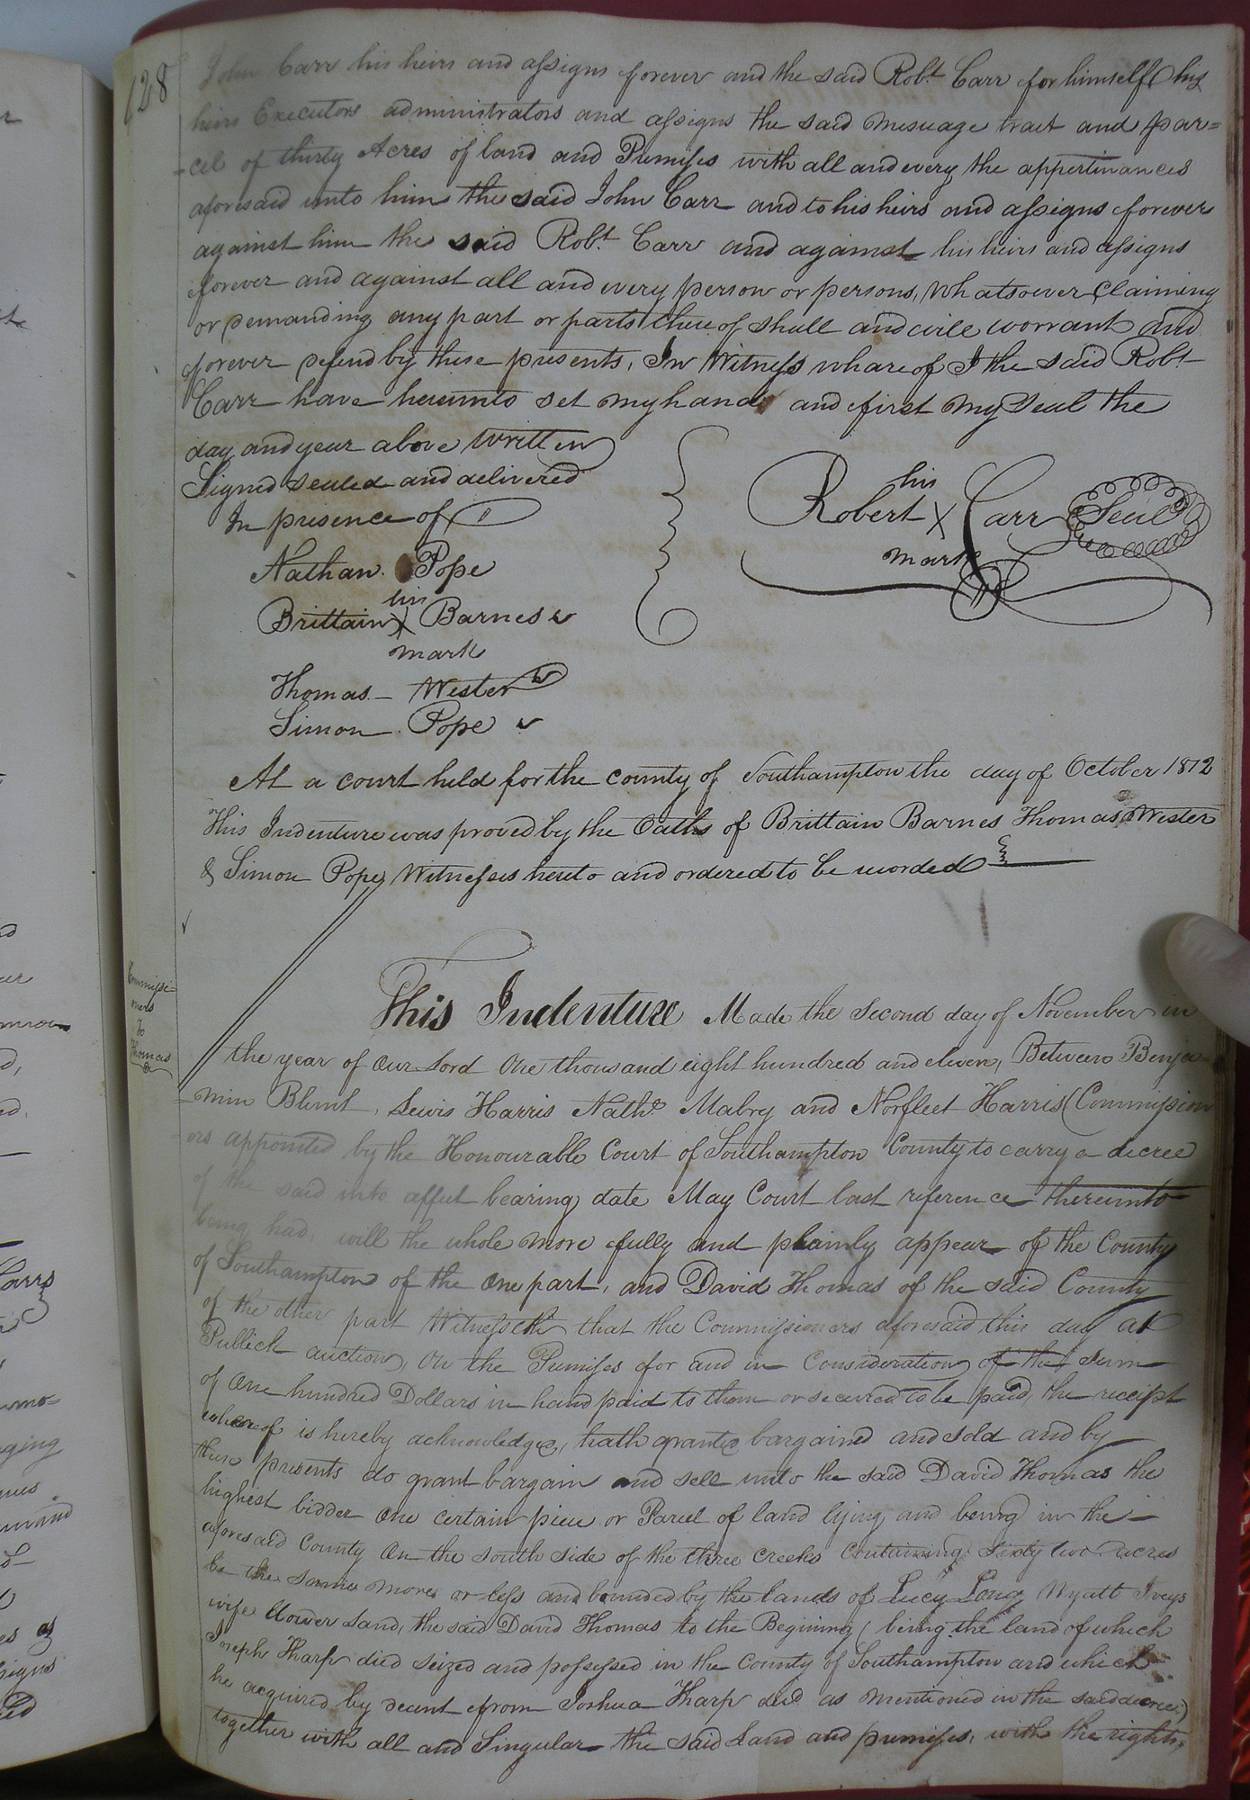 628
John Carr his heirs and assigns forever and the said Robt. Carr for himself & his
heirs Executors administrators and assigns the said mesuage tract and par=
-cel of thirty Acres of land and Premises with all and every the appertinances
aforesaid unto him the said John Carr and to his heirs and assigns forever
against him the said Robt. Carr and against his heirs and assigns
forever and against all and every person or persons, whatsoever Claiming
or demanding any part or parts thereof shall and will worrant and
forever defend by these presents, In Witness whareof I the said Robt
Carr have hereunto set my hand and first my Seal the
day and year above written
Signed sealed and delivered
In presence of
Robert his X mark Carr Seal
Nathan Pope
Brittain his X mark Barnes
Thomas Wester
Simon Pope
At a court held for the county of Southampton the day of October 1812
This Indenture was proved by the Oaths of Brittain Barnes Thomas Wester
& Simon Pope Witnesses hereto and ordered to be recorded
Commissi-
oners
to
Thomas
This Indenture Made the Second day of November in
the year of our Lord One thousand eight hundred and eleven, Between Benja-
min Blunt, Lewis Harris Nathl. Mabry and Norfleet Harris (Commission
ers appointed by the Honourable Court of Southampton County to carry a decree
of the said into affect bearing date May Court last reference thereunto
being had, will the whole more fully and plainly appear of the County
of Southampton of the one part, and David Thomas of the said County
of the other part Witnesseth that the Commissioners aforesaid this day at
Publick auction, on the Premises for and in Consideration of the Sum
of One hundred Dollars in hand paid to them or secured to be paid, the receipt
whereof is hereby acknowledged, hath granted bargained and sold and by
these presents do grant bargain and sell unto the said David Thomas the
highest bidder One certain piece or Parcel of land lying and being in the
aforesaid County On the south side of the three creeks Containing Sixty two acres
be the same more or less and bounded by the lands of Lucy Long Wyatt Iveys
wife dower Land, the said David Thomas to the Begining (being the land of which
Joseph Tharp died seized and possessed in the County of Southampton and which
he acquired by decent from Joshua Tharp decd as mentioned in the said decree)
together with all and Singular the said Land and premises, with the rights,